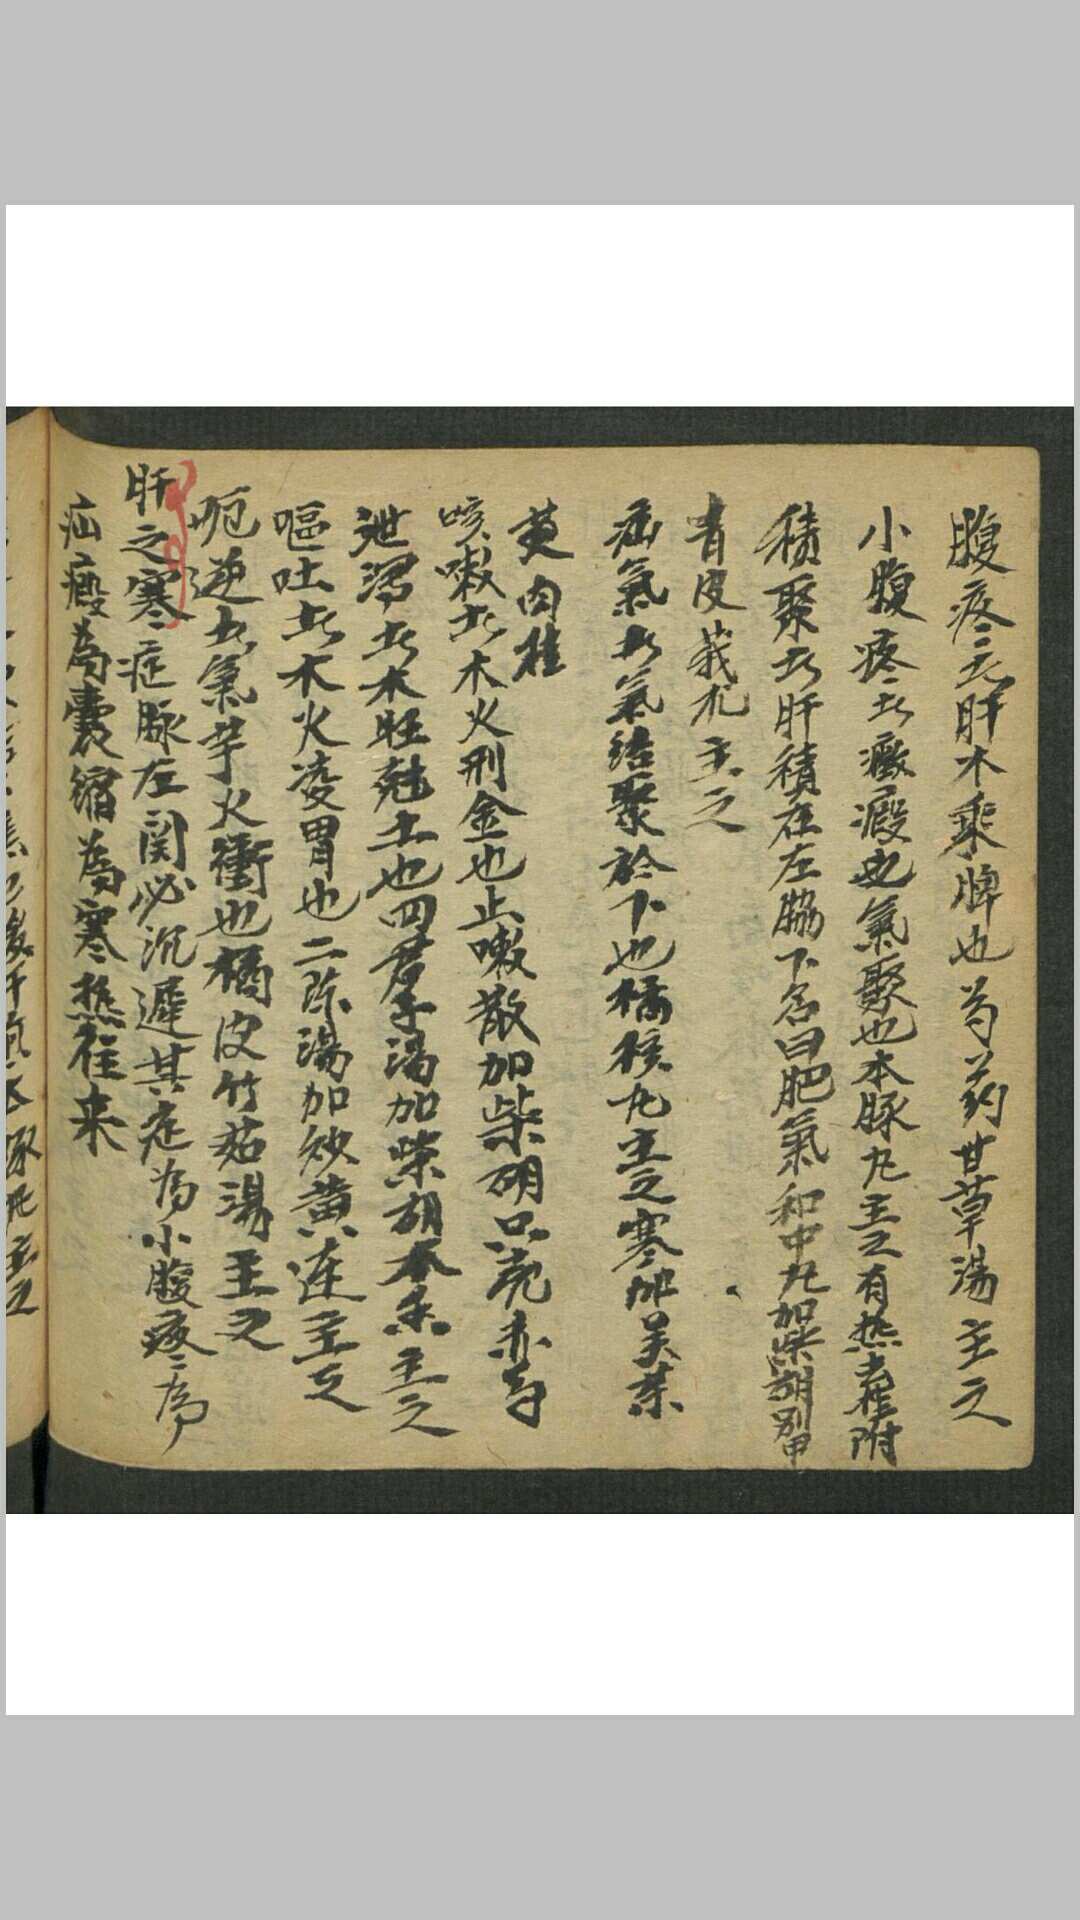 腹疼者肝木乘脾也芍药甘草湯主之
小腹疼者癥瘕也氣聚也本脉丸主之有热去桂附
積聚者肝積在左脇下名曰肥氣和中丸加柴胡别甲
青皮莪朮主之
疝氣者氣结聚於下也橘核丸主之寒加吴茱
萸肉桂
咳嗽者木火刑金也止嗽散加柴胡只壳赤芍
泄瀉者木旺尅土也四君子湯加柴胡木香主之
嘔吐者木火凌胃也二陈湯加炒黄連主之
呃逆者氣火衝也橘皮竹茹湯主之
肝之寒症脉左関必沉遲其症為小腹疼為
疝瘕為囊縮為寒热往来